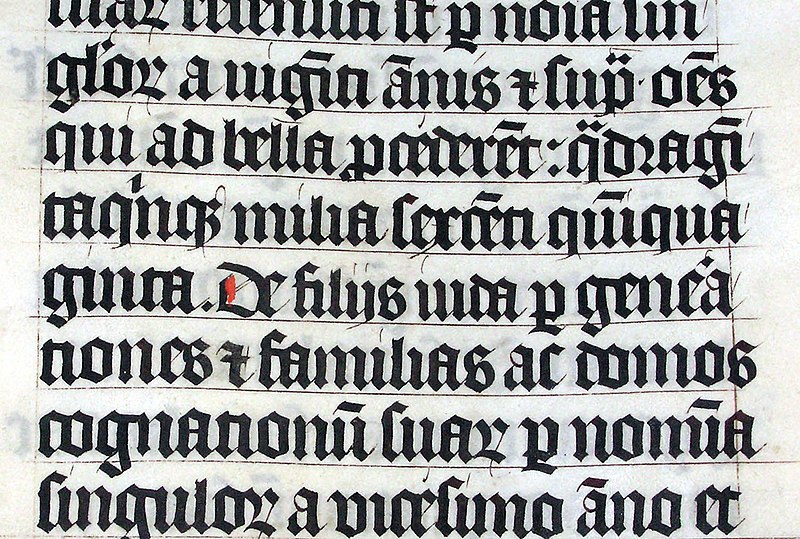 suar recensiti st p noīa sin
glor a uigīti ānis ⁊ sup̄· om̄s
qui ad bella ꝓcederēt: qͣdragīti
taqinqꝫ milia sexcēti quīqua
ginta. De filijs iuda p gen̄ca
tiones ⁊ familias ac domos
cognationū suaꝝ p nomīa
singuloꝝ a vicesimo āno et